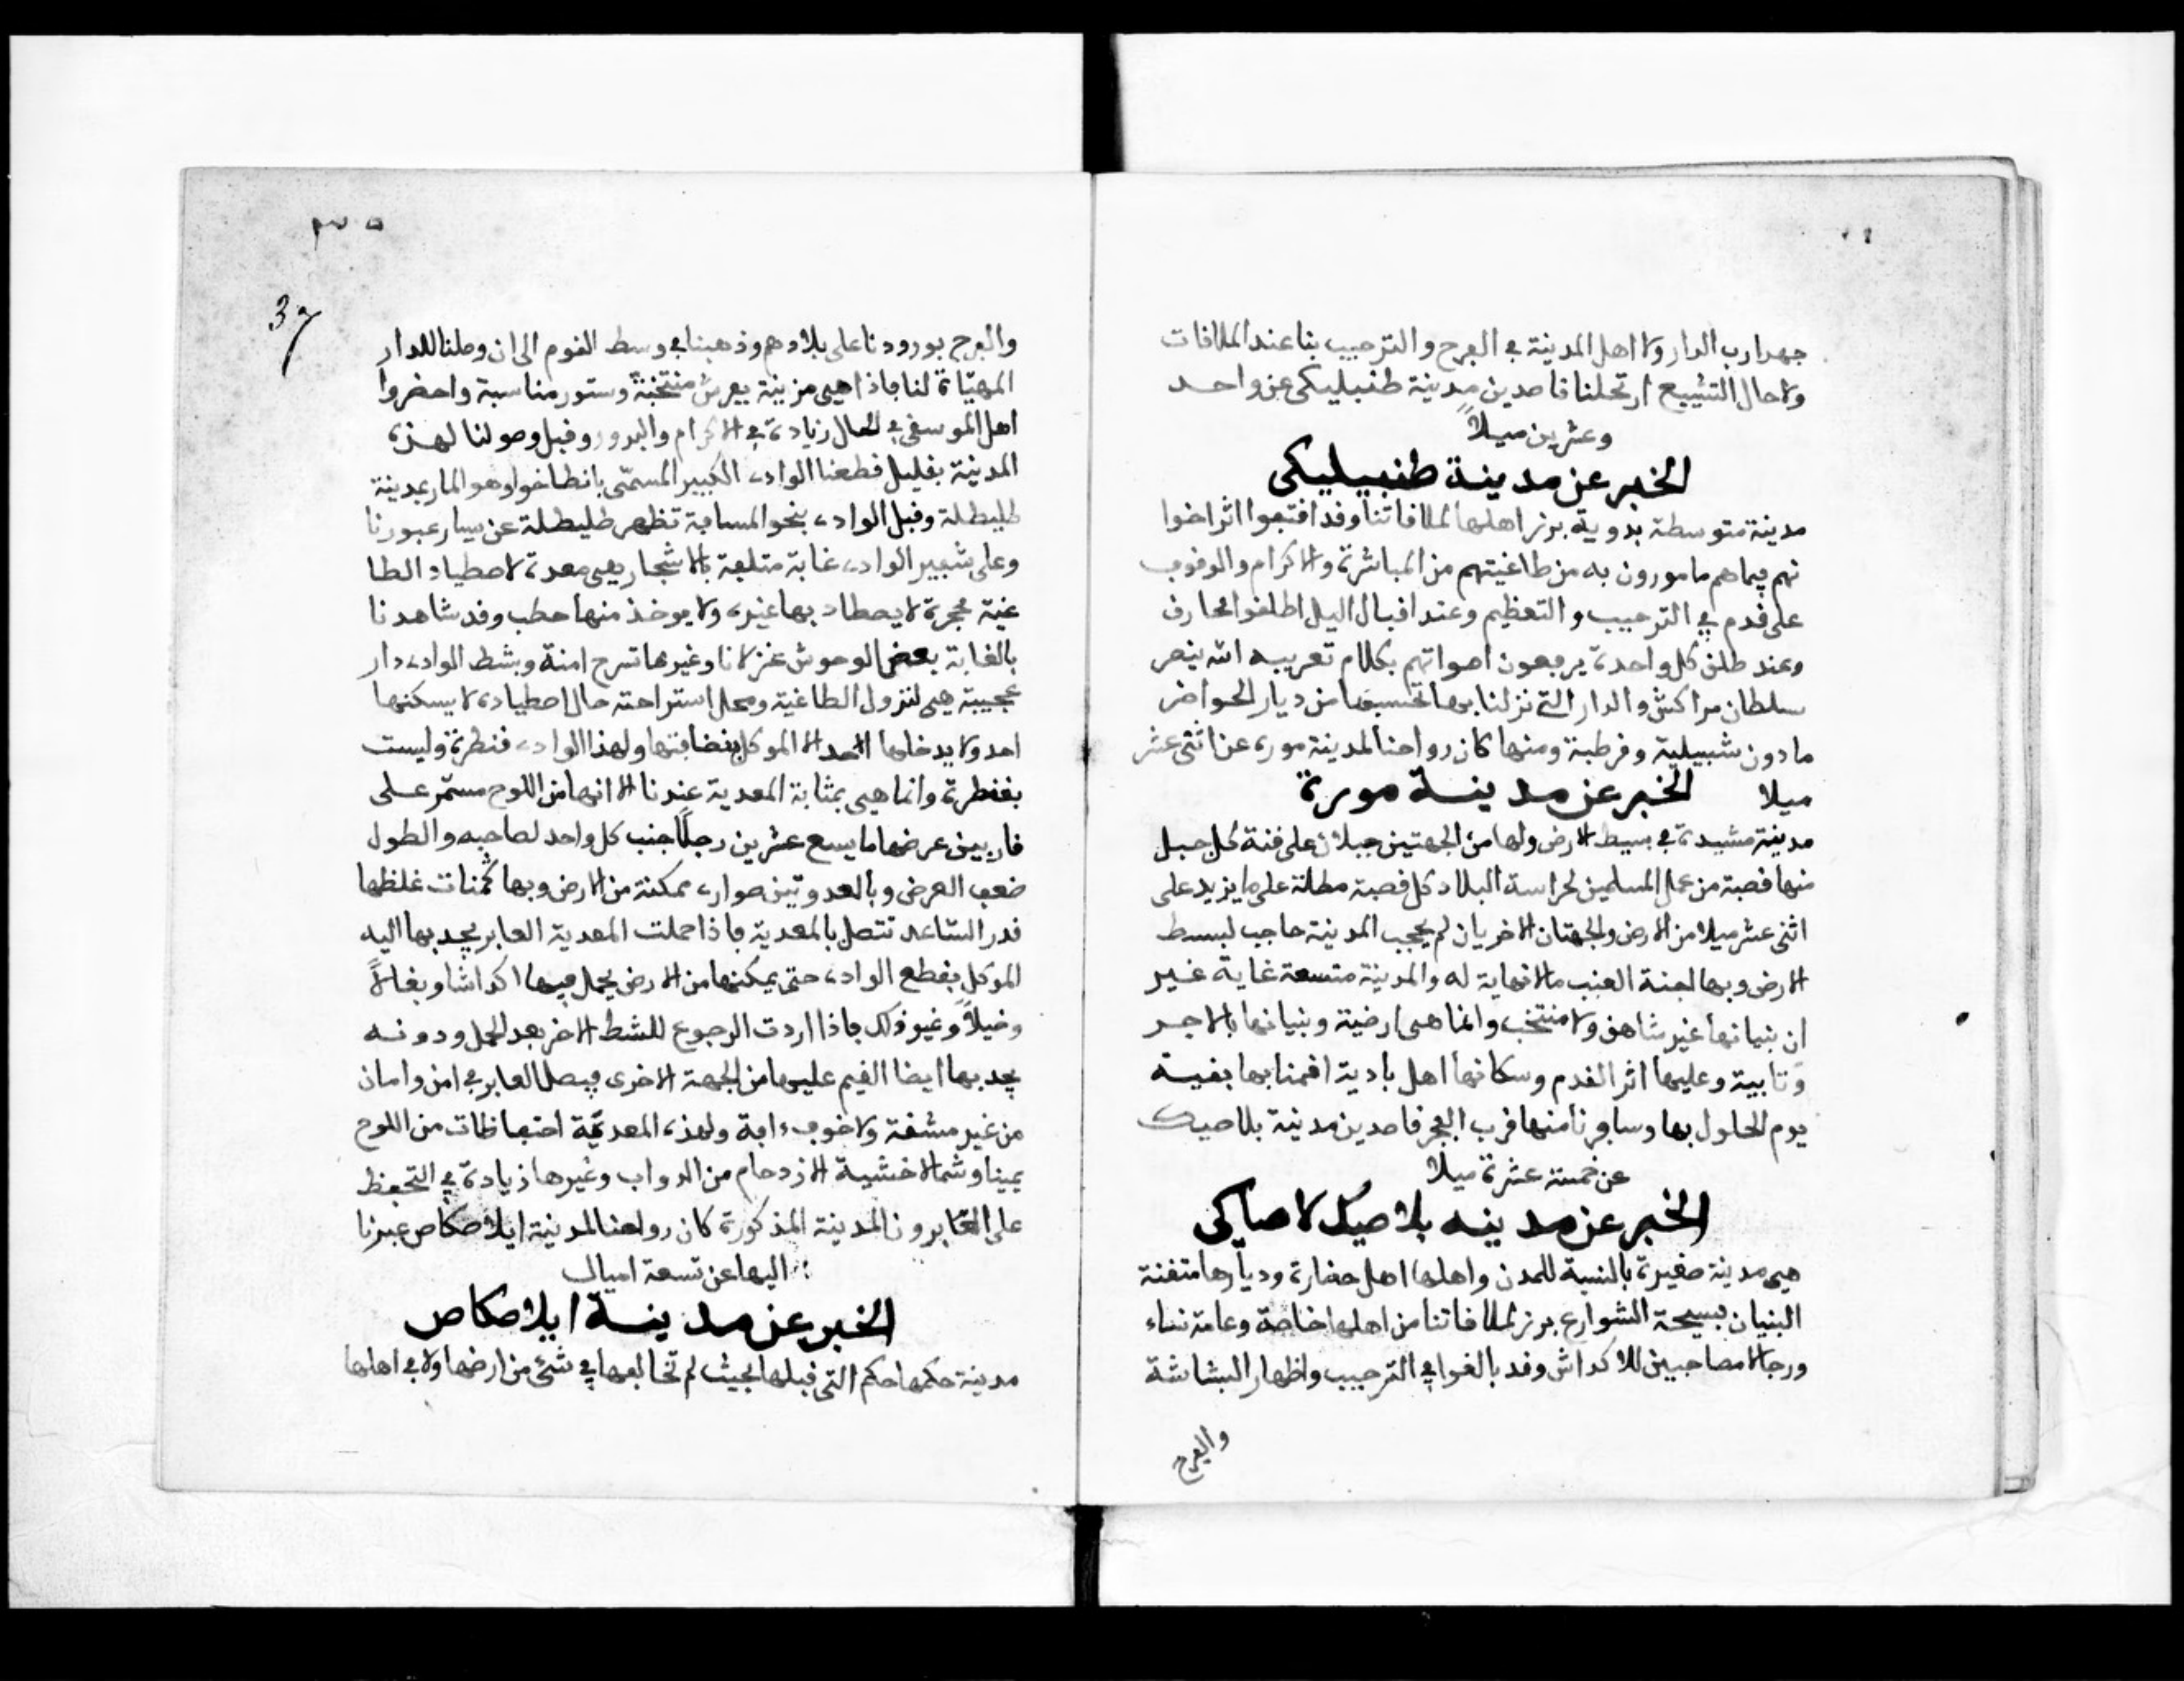 جهدا رب الدار ولا اهل المدينة في الفرح والترحيب بنا عند الملاقات
ولا حال التشييع ارتحلنا قاصدين مدينة طنبليكى عن واحد
وعشرين ميلاً
الخبر عن مدينة طنبيليكى
مدينة متوسطة بدوية برز اهلها لملاقاتنا وقد اقتفوا اثر اخوا
نهم فيما هم مامورون به من طاغيتهم من المباشرة والاكرام والوقوف
على قدم في الترحيب والتعظيم وعند اقبال اليل اطلقوا المحارق
وعند طلق كل واحدة يرفعون اصواتهم بكلام تعريبه الله ينصر
سلطان مراكش والدار التي نزلنا بها تحسبها من ديار الحواضر
ما دون شبيلية وقرطبة ومنها كان رواحنا لمدينة مورة عن اثنى عشر
ميلا الخبر عن مدينة مورة
مدينة مشيدة في بسيط الارض ولها من الجهتين جبلان على قنة كل جبل
منها قصبة من عمل المسلمين لحراسة البلاد كل قصبة مطلة على ما يزيد على
اثنى عشر ميلا من الارض والجهتان الاخريان لم يحجب المدينة حاجب لبسط
الارض وبها لجنة العنب ما لا نهاية له والمدينة متسعة غاية غير
ان بنيانها غير شاهق ولا منتخب وانما هي ارضية وبنيانها بالاجر
وتابية وعليها اثر القدم وسكانها اهل بادية اقمنا بها بقية
يوم الحلول بها وسافرنا منها قرب الفجر قاصدين مدينة بلاصيك
عن خمسة عشرة ميلا
الخبر عن مدينه بلاصيك لاصاكى
هي مدينة صغيرة بالنسبة للمدن واهلها اهل حضارة وديارها متقنة
البنيان فسيحة الشوارع برز لملاقاتنا من اهلها خاصة وعامة نساء
ورجالا مصاحبين للاكداش وقد بالغوا في الترحيب واظهار البشاشة
والفرح
37
والفرح بورودنا على بلادهم وذهبنا في وسط القوم الى ان وصلنا للدار
المهيّاة لنا فاذا هي مزينة بفرش منتخبة وستور مناسبة واحضروا
اهل الموسقى في الحال زيادة في الاكرام والبرور وقبل وصولنا لهذه
المدينة بقليل قطعنا الواد الكبير المسمّى بانطاخوا وهو المار بمدينة
طليطلة وقبل الواد بنحو المسافة تظهر طليطلة عن يسار عبورنا
وعلى شفير الواد غابة متلفة بالاشجار هي معدة لاصطياد الطا
غية محجرة لا يصطاد بها غيره ولا يوخذ منها حطب وقد شاهدنا
بالغابة بعض الوحوش غزلانا وغيرها تسرح امنة وبشط الواد دار
عجيبة هي لنزول الطاغية ومحل استراحته حال اصطياده لا يسكنها
احد ولا يدخلها احد الا الموكل بنضافتها ولهذا الواد قنطرة وليست
بقنطرة وانما هي بمثابة المعدية عندنا الا انها من اللوح مسمّر على
قاربين عرضها ما يسع عشرين رجلاً جنب كل واحد لصاحبه والطول
ضعف العرض وبالعدوتين صوار ممكنة من الارض وبها قمنات غلظها
قدر السّاعد تتصل بالمعدية فاذا حملت المعدية العابر يجبد بها اليه
الموكل بقطع الواد حتى يمكنها من الارض يحمل فيها اكداشا وبغالاً
وخيلاً وغير ذلك فاذا اردت الرجوع للشط الاخر بعد الحمل ودونه
يجبد بها ايضا القيم عليها من الجهة الاخرى فيصل العابر في امن وامان
من غير مشقة ولا خوف دابة ولهذه المعديّة احتفاظات من اللوح
يمينا وشمالا خشية الازدحام من الدواب وغيرها زيادة في التحفظ
على العابر ومن المدينة المذكورة كان رواحنا لمدينة ايلاصكاص عبرنا
اليها عن تسعة اميال
الخبر عن مدينة ايلاصكاص
مدينة حكمها حكم التي قبلها بحيث لم تخالفها في شئ من ارضها ولا في اهلها